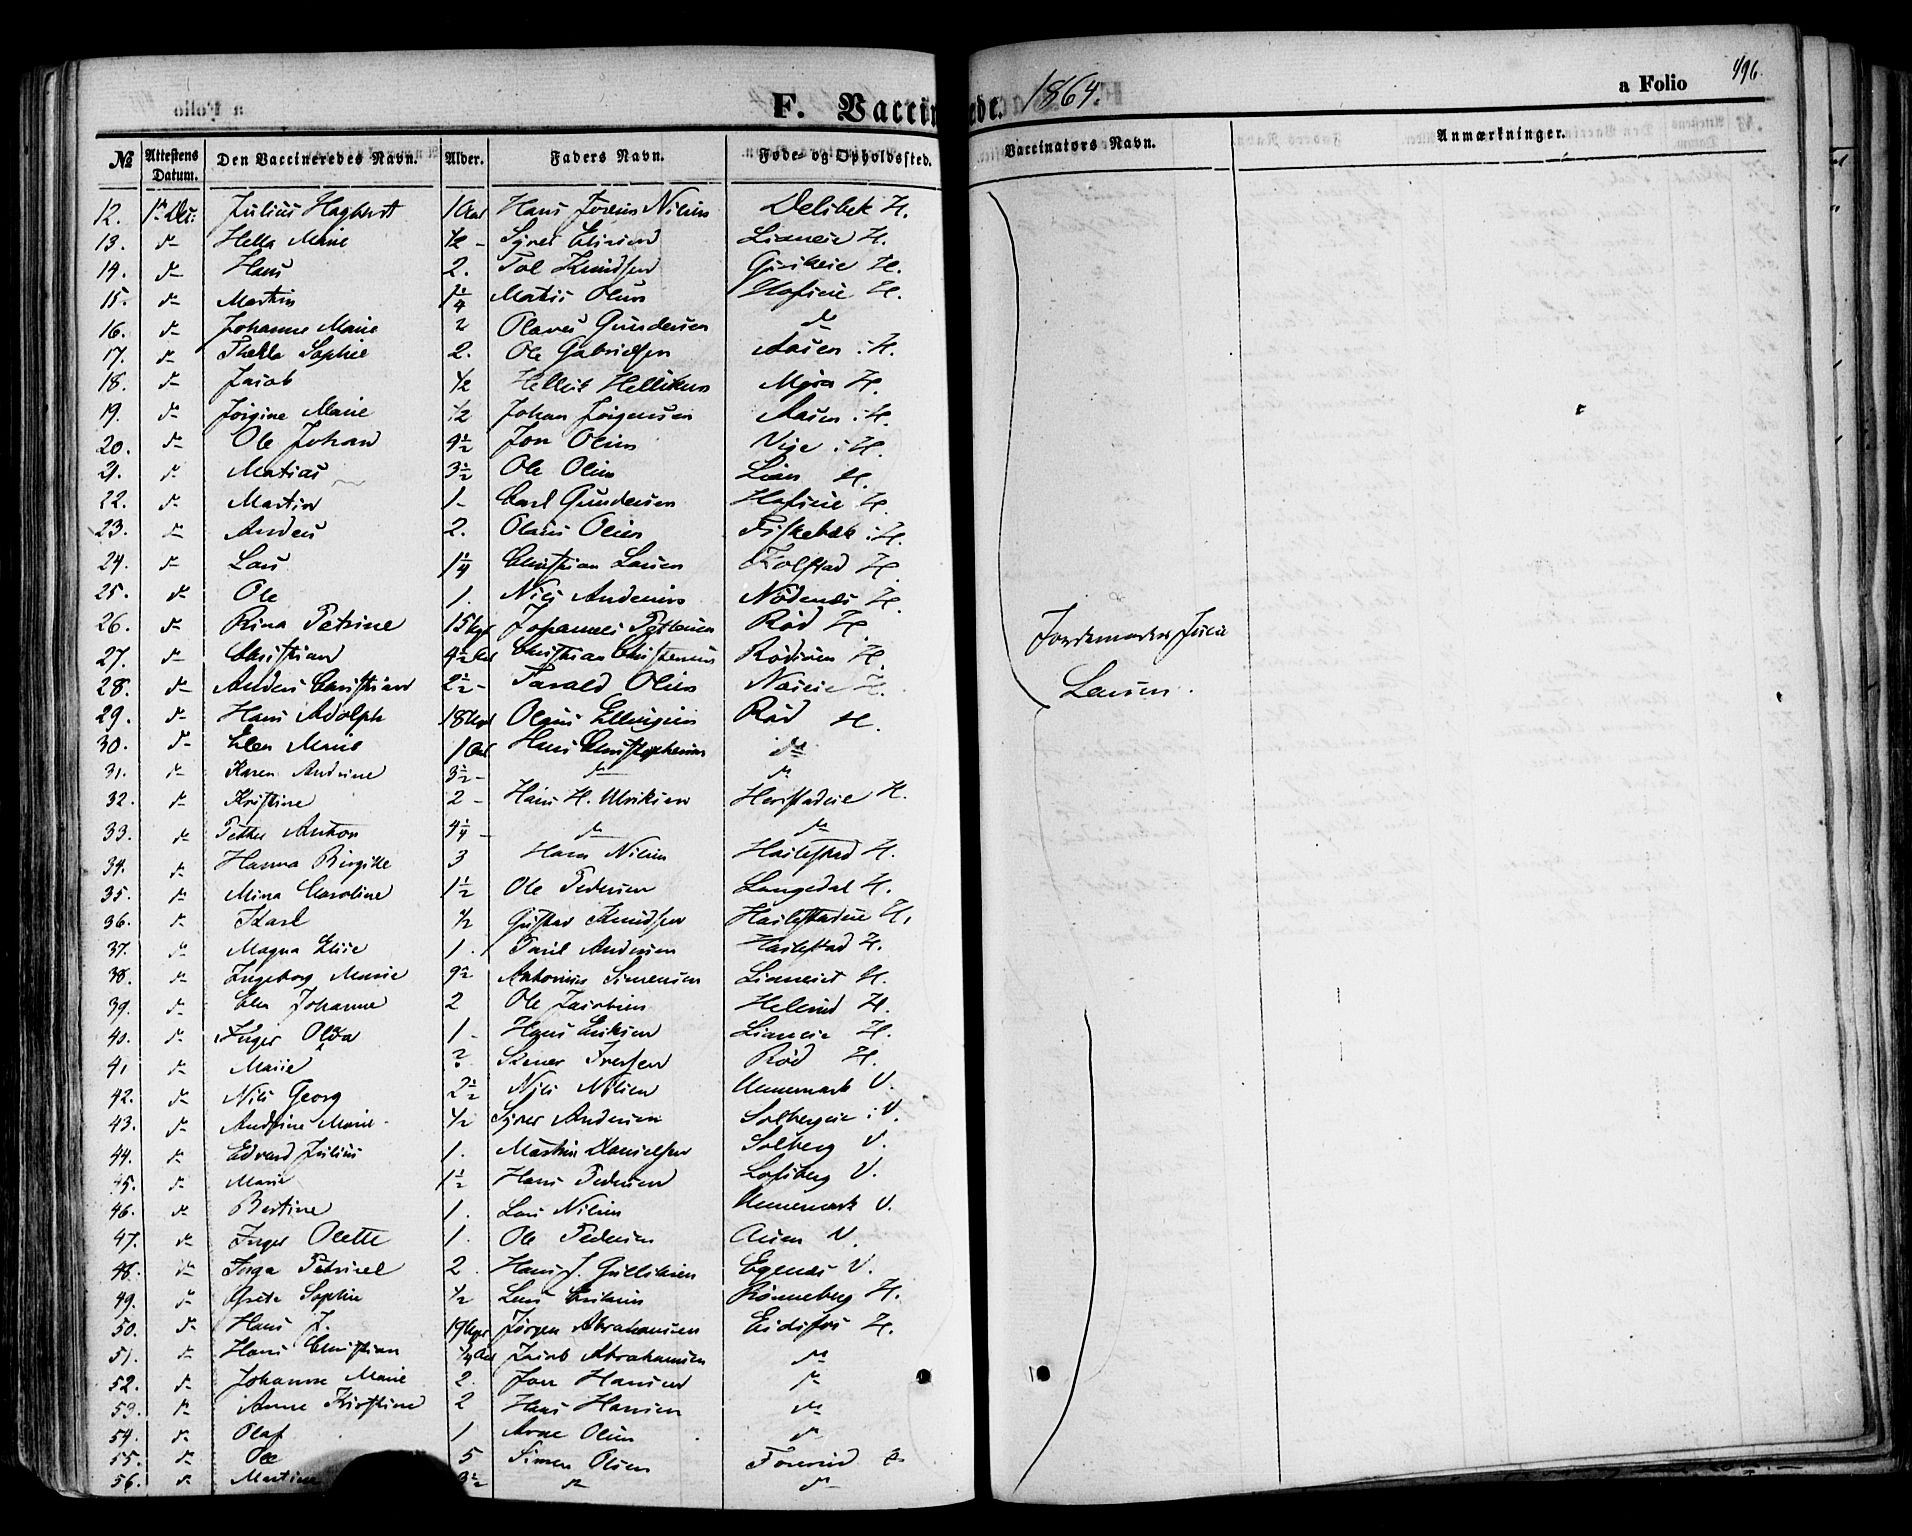 F. Vaccinerede. 1864. a Folio 496.
№ Attestens Datum. Den Vaccineredes Navn. Alder. Faders Navn. Føde- og Opholdssted. Vaccinators Navn. Anmærkninger.
12. Julius Hagbert 1 Aar Hans Nilsen H.
13. d– Hella Marie 1/2 – Syver
14. d– Hans 2. Knudsen H.
15. d– Martin 1 1/4 Matis Olsen H.
16. d– Johanne Marie 2 Olaves Gundersen d–
17. d– Thekla Sophie 2. Ole Gabrielsen Aasen i H.
18. d– Jacob 1/2 Helleik Helliksen Myra H.
19. d– Jørgine Marie 1/2 Johan Jørgensen Aasen i H.
20. d– Ole Johan 9 1/2 Jon Olsen i H.
21. d– Matias 3 1/2 Ole Olsen Lian H.
22. d– Martin 1 – Carl Gundersen H.
23. d– Anders 2. Olaus Olsen Fiskebæk i H.
24. d– Lars 1 1/4 Christian Larsen Kolstad H.
25. d– Ole 1. Nils Andersen Nødenæs H.
26. d– Rina Petrine 15 Ugr Johannes Pettersen Rød H.
27. d– Christian 4 1/2 Aar Christian Christensen H.
28. d– Anders Christian 2 1/2 – Tarald Olsen H.
29. d– Hans Adolph 18 Ugr Olaus Ellingsen Rød H.
30. d– Elen Marie 1 Aar Hans Christophersen d–
31. d– Karen Andrine 3 1/2 – d– d–
32. d– Kristine 2 – Hans H. Ulriksen H.
33. d– Petter Anton 4 1/4 – d– d–
34. d– Hanna Birgitte 3 Hans Nilsen Hailestad H.
35. d– Mina Caroline 1 1/2 Ole Pedersen Langedal H.
36. d– Karl 1/2 Gustav Knudsen H.
37. d– Magna Elise 1. Andersen Hailestad H.
38. d– Ingeborg Marie 9 1/2 Antonius Simensen H.
39. d– Elen Johanne 2 Ole Jacobsen H.
40. d– Inger Olava 1 – Hans Eriksen Lianeie H.
41 d– Marie 2. Iversen Rød H.
42. d– Nils Georg 2 1/2 Nils Nilsen Unnemark V.
43. d– Andrine Marie 1/2 Syver Andersen Solbergeie i V.
44. d– Edvard Julius 1. Martin Danielsen Solberg V.
45. d– Marie 1 1/2 Hans Pedersen Lofsberg V.
46. d– Bertine 1. Lars Nilsen Unnemark V.
47. d– Inger Olette 1. Ole Pedersen Aasen V.
48. d– Inga 2. Hans J. Gulliksen Egenæs V.
49. d– Sophie 1/2 Lars Eriksen Rønneberg H.
50. d– Hans J. 19 Ugr Jørgen Abrahamsen Eidsfos H.
51. d– Hans Christian 1/4 Aar Jacob Abrahamsen d–
52. d– Johanne Marie 2. Jon Hansen d–
53. d– Anne Kirstine 2 Hans Hansen d–
54. d– Olaf 1 Arne Olsen d–
55. d– Ole 5 Simen Olsen
56. d– Martine 3 1/2 d– d–
Jordemoder
Larsen.